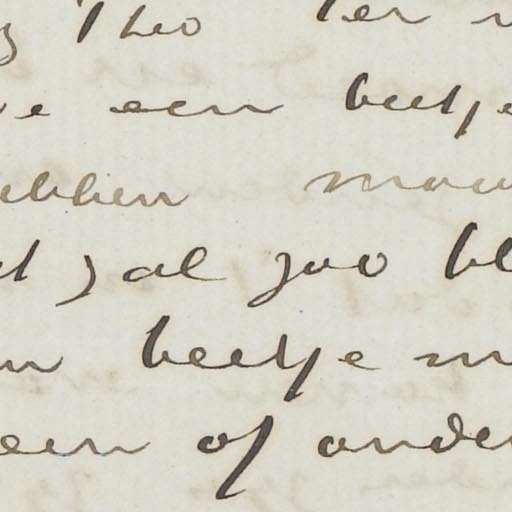 Theo ter
een beetje
ebben maar
zal zoo bl
beetje m
een of ander